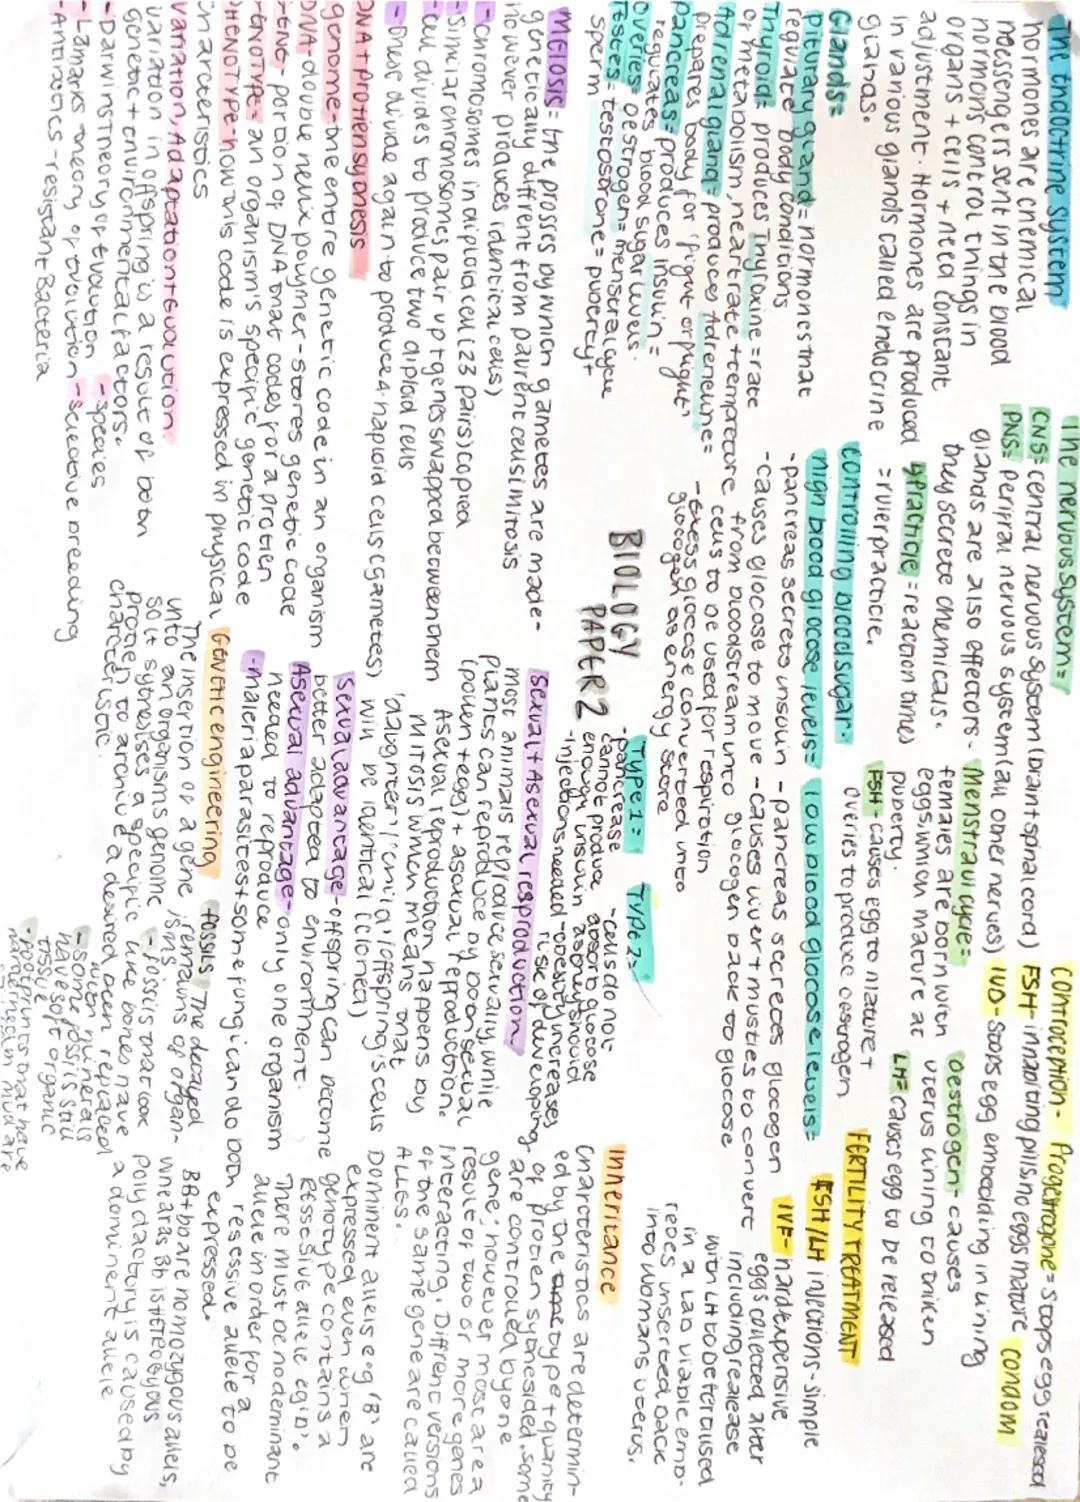 The Endoctrine system
hormones are chemical
messengers sent in the blood
hormons control things in
organs + cells + need constant
adjustment. Hormones are produced
in various glands called endocrine
glands.
Glands=
pituraty gland = hormones that
regulate body conditions
Thyroid= produces Thyloxine = rate
of metabolism, heartrate + tempreture
Adrenal gland = produces Adreneline=
prepares body for 'fight or flight'
pancreas= produces insulin =
regulates blood sugar levels.
Overies= oestrogen= menstral cycle
Testes= testosorone= puberty +
sperm
The nervous system=
CNS= central nervous system (brain + spinal cord)
PNS= peripral nervous system (all other nerves)
glands are also effectors.
they secrete chemicals.
rpracticle = reaction times
= ruler practicle.
Menstral cycle=
females are born with
eggs which mature at
puberty.
FSH - causes egg to mature +
overies to produce oestrogen
Oestrogen- causes
uterus lining to thiken
LH= causes egg to be released
Controception- Progetrogone = stops egg realesed
FSH- inhabiting pills no eggs mature condom
IUD - stops egg embedding in lining
FERTILITY TREATMENT
FSH/LH injections - simple
IVF- hard + expensive
eggs collected after
including realease
with LH to be fertalised
in a lab viable emb-
reoes inserted back
into womans uterus.
controlling blood sugar.
high bood glocose levels=
-pancreas secrets insulin
-causes glocose to move
from bloodstream into
cells to be used for respiration
-Exess glocose converted into
glocogen as energy store
low blood glocose levels=
-pancreas secretes glocogen
-causes liver + mustles to convert
glocogen back to glocose
Type 1=
-pancrease
cannot produce
enough insulin
-injections needed
Type 2=
-cells do not
absorb glocose
as they should
-obesity increases
risk of developing
BIOLOGY
PAPER 2
MEIOSIS= the prosses by which gametes are made-
genetically diffrent from parent cells (mitosis
however produces identical cells)
- chromosomes in diploid cell (23 pairs) copied
- similar chromosomes pair up + genes swapped between them
- cell divides to produce two diploid cells
- these divide again to produce 4 haploid cells (gametes)
Sexual + Asexual resproduction
most animals reproduce sexually, while
plants can reprdduce by both sexual
(pollen + egg) + asexual reproduction.
Asexual reproduction happens by
MITOSIS which means that
'daughter'/'child' offspring's cells
will be identical (cloned)
Sexual advantage - offspring can become
better adapted to environment.
Asexual advantage - only one organism
needed to reproduce
- maleria parasites + some fungi can do both
DNA + protien sythesis
genome- the entire genetic code in an organism
DNA- double helix polymer - stores genetic code
GENE- portion of DNA that codes for a protien
GENOTYPE= an organism's specific genetic code
PHENOTYPE- how this code is expressed in physical
characteristics
Variation, Adaptation + Evolution.
variation in offspring is a result of both
genetic + environmental factors.
- Darwins theory of Evolution
- Lamarks theory of evolution
- Antibiotics - resistant Bacteria
- species
- selective breeding
Genetic engineering
The insertion of a gene
into an organisms genome
so it sythesises a specific
protien) to archive a desired
characteristic.
fossils The decayed
remains of organ-
isms
- fossils that look
like bones have
been replaced
with minerals
- some fossils still
have soft organic
tissue
- footprints that have
hardened in mud are
Inheritance
Charcteristics are determin-
ed by the genetype + quanity
of protien sythesided. some
are controlled by one
gene; however most are a
result of two or more genes
interacting. Diffrent versions
of the same gene are called
ALLES.
Dominent alleles eg 'B' are
expressed even when
genotype contains a
ressesive allele eg 'b'.
There must be no deminant
allele in order for a
resessive allele to be
expressed.
BB + bb are homozygous allels,
wheras Bb is HETEOGYOUS
polydactory is caused by
a dominent allele